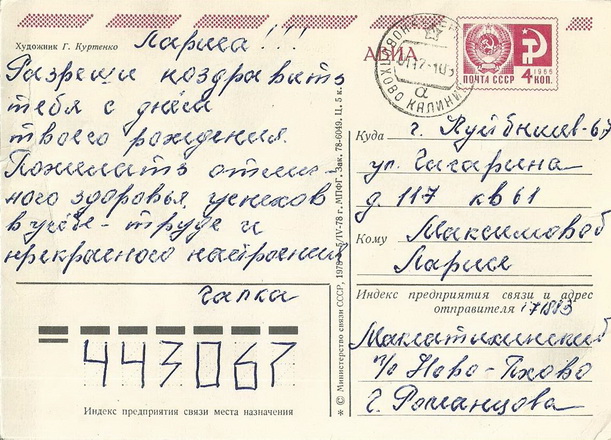 Художник Г. Куртенко
Лариса!!!
Разреши поздравить
тебя с днём
твоего рождения.
Пожелать отлич-
ного здоровья, успехов
в учёбе - труде и
прекрасного настроения
Галка
443067
Индекс предприятия связи места назначения
© Министерство связи СССР, 1978
IV-78 г. МПФГ. Зак. 78-6049. Ц. 5 к.
АВИА
ПОЧТА СССР
1966
4 КОП.
КАЛИНИН
Куда г. Куйбышев-67
ул. Гагарина
д. 117 кв 61
Кому Максимовой
Ларисе
Индекс предприятия связи и адрес
отправителя 171883
Малатихинский
п/о Ново-Пхово
Г. Романцова